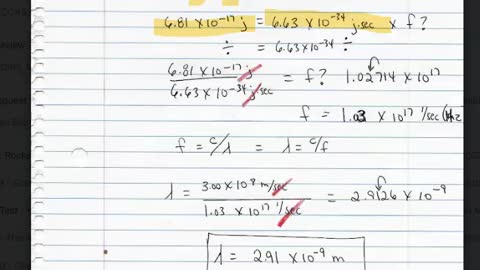 6.81 x 10⁻¹⁷ j = 6.63 x 10⁻³⁴ j.sec x f?
÷ = 6.63x10⁻³⁴ ÷
6.81 x 10⁻¹⁷ j
6.63 x 10⁻³⁴ j.sec
= f? 1.02714 x 10¹⁷
f = 1.03 x 10¹⁷ 1/sec (Hz)
f = c/λ = λ = c/f
λ = 3.00 x 10⁸ m/sec
1.03 x 10¹⁷ 1/sec
= 2.9126 x 10⁻⁹
λ = 2.91 x10⁻⁹ m